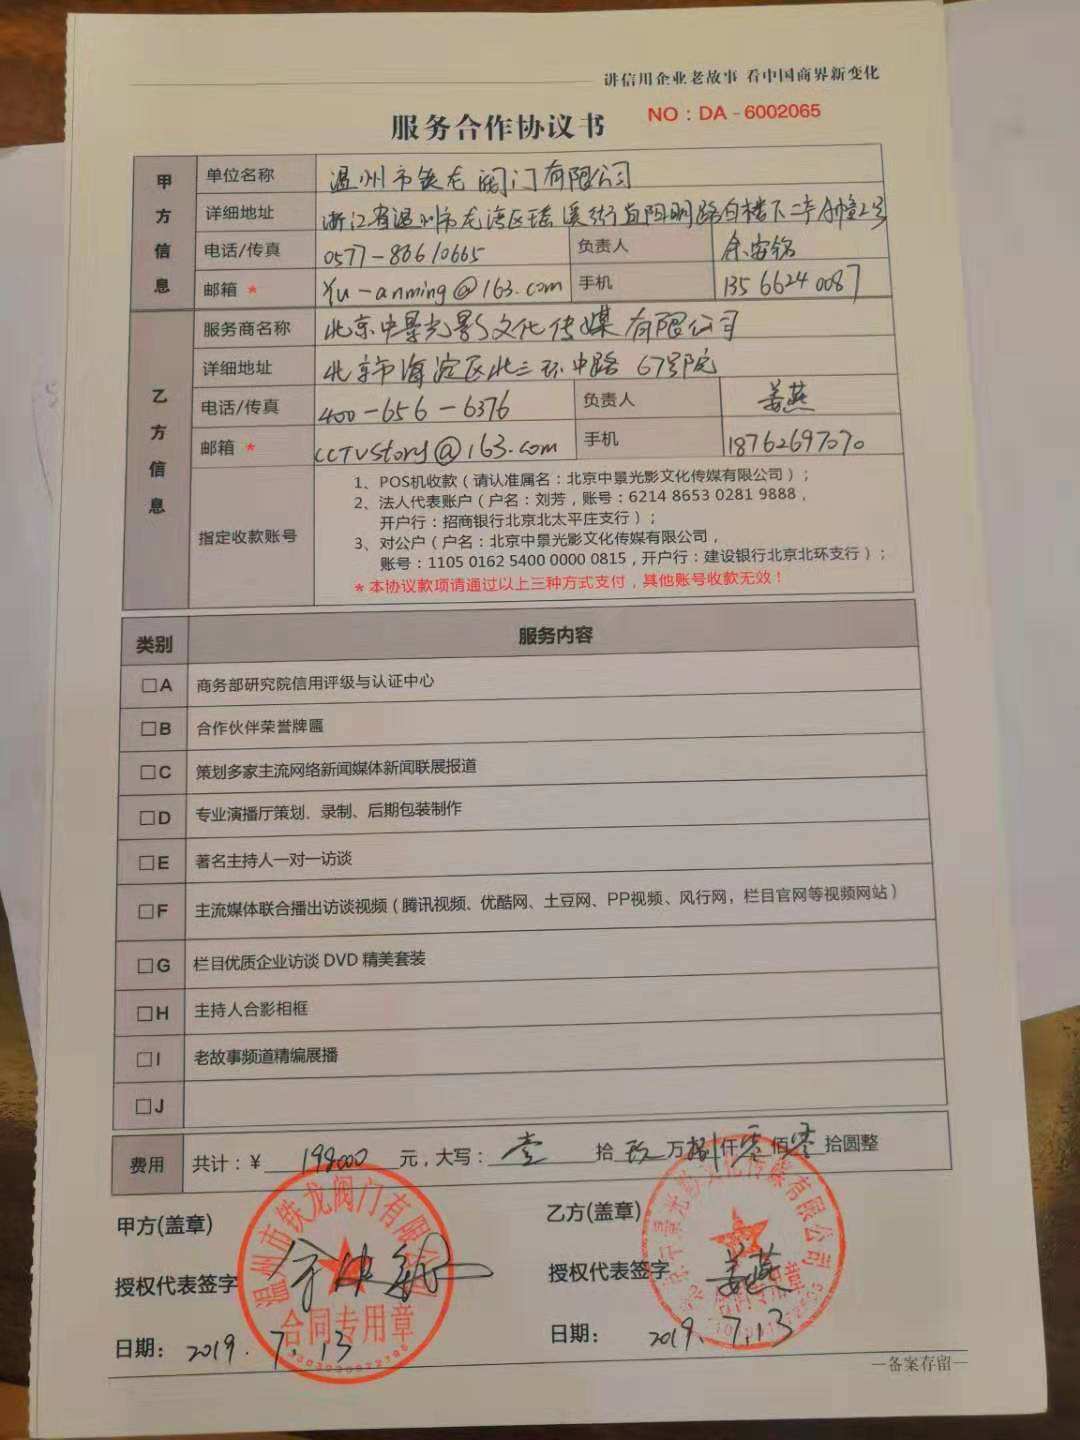 讲信用企业老故事 看中国商界新变化
服务合作协议书
NO：DA - 6002065
甲方信息
单位名称 温州市铁龙阀门有限公司
详细地址 浙江省温州市龙湾区瑶溪街道阳明路白楼下
电话/传真 0577-86610665 负责人 余安铭
邮箱 * Yu-anming@163.com 手机 13566240087
乙方信息
服务商名称 北京中景光影文化传媒有限公司
详细地址 北京市海淀区北三环中路67号院
电话/传真 400-656-6376 负责人 姜燕
邮箱 * CCTVStory@163.com 手机 18762697070
指定收款账号
1、POS机收款（请认准属名：北京中景光影文化传媒有限公司）；
2、法人代表账户（户名：刘芳，账号：6214 8653 0281 9888，
开户行：招商银行北京北太平庄支行）；
3、对公户（户名：北京中景光影文化传媒有限公司，
账号：1105 0162 5400 0000 0815，开户行：建设银行北京北环支行）；
*本协议款项请通过以上三种方式支付，其他账号收款无效！
类别 服务内容
□A 商务部研究院信用评级与认证中心
□B 合作伙伴荣誉牌匾
□C 策划多家主流网络新闻媒体新闻联展报道
□D 专业演播厅策划、录制、后期包装制作
□E 著名主持人一对一访谈
□F 主流媒体联合播出访谈视频（腾讯视频、优酷网、土豆网、PP视频、风行网，栏目官网等视频网站）
□G 栏目优质企业访谈DVD精美套装
□H 主持人合影相框
□I 老故事频道精编展播
□J
费用 共计：¥ 198000 元，大写： 壹 拾 玖 万 捌 仟 零 佰 零 拾圆整
甲方(盖章) 乙方(盖章)
温州市铁龙阀门有限公司
合同专用章
北京中景光影文化传媒有限公司
合同专用章
授权代表签字 授权代表签字 姜燕
日期： 2019.7.13 日期： 2019.7.13
—备案存留—